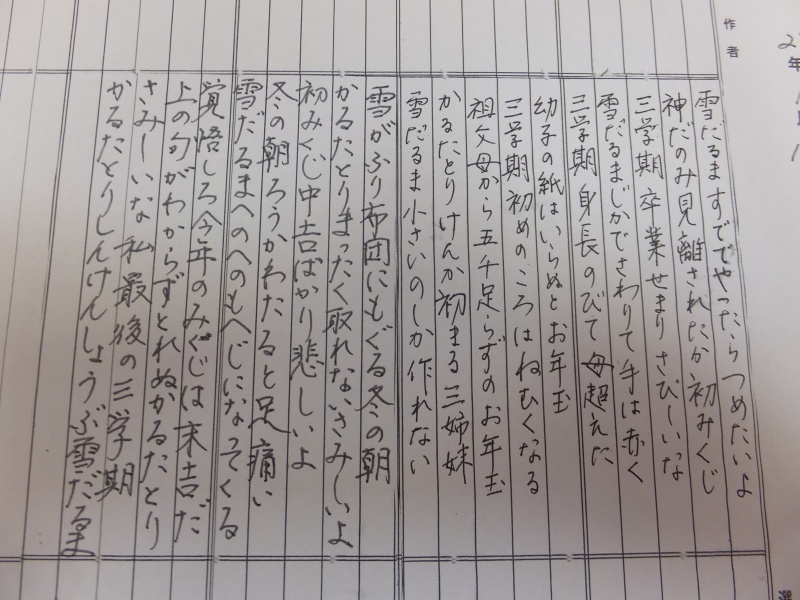 作者
雪だるますででやったらつめたいよ
神だのみ見離されたか初みくじ
三学期卒業せまりさびしいな
雪だるまじかでさわりて手は赤く
三学期身長のびて母超えた
幼子の紙はいらぬとお年玉
三学期初めのころはねむくなる
祖父母から五千足らずのお年玉
かるたとりけんか初まる三姉妹
雪だるま小さいのしか作れない
雪がふり布団にもぐる冬の朝
かるたとりまったく取れないさみしいよ
初みくじ中吉ばかり悲しいよ
冬の朝ろうかわたると足痛い
雪だるまへのへのもへじになってくる
覚悟しろ今年のみくじは末吉だ
上の句がわからずとれぬかるたとり
さみしいな私最後の三学期
かるたとりしんけんしょうぶ雪だるま
年
選